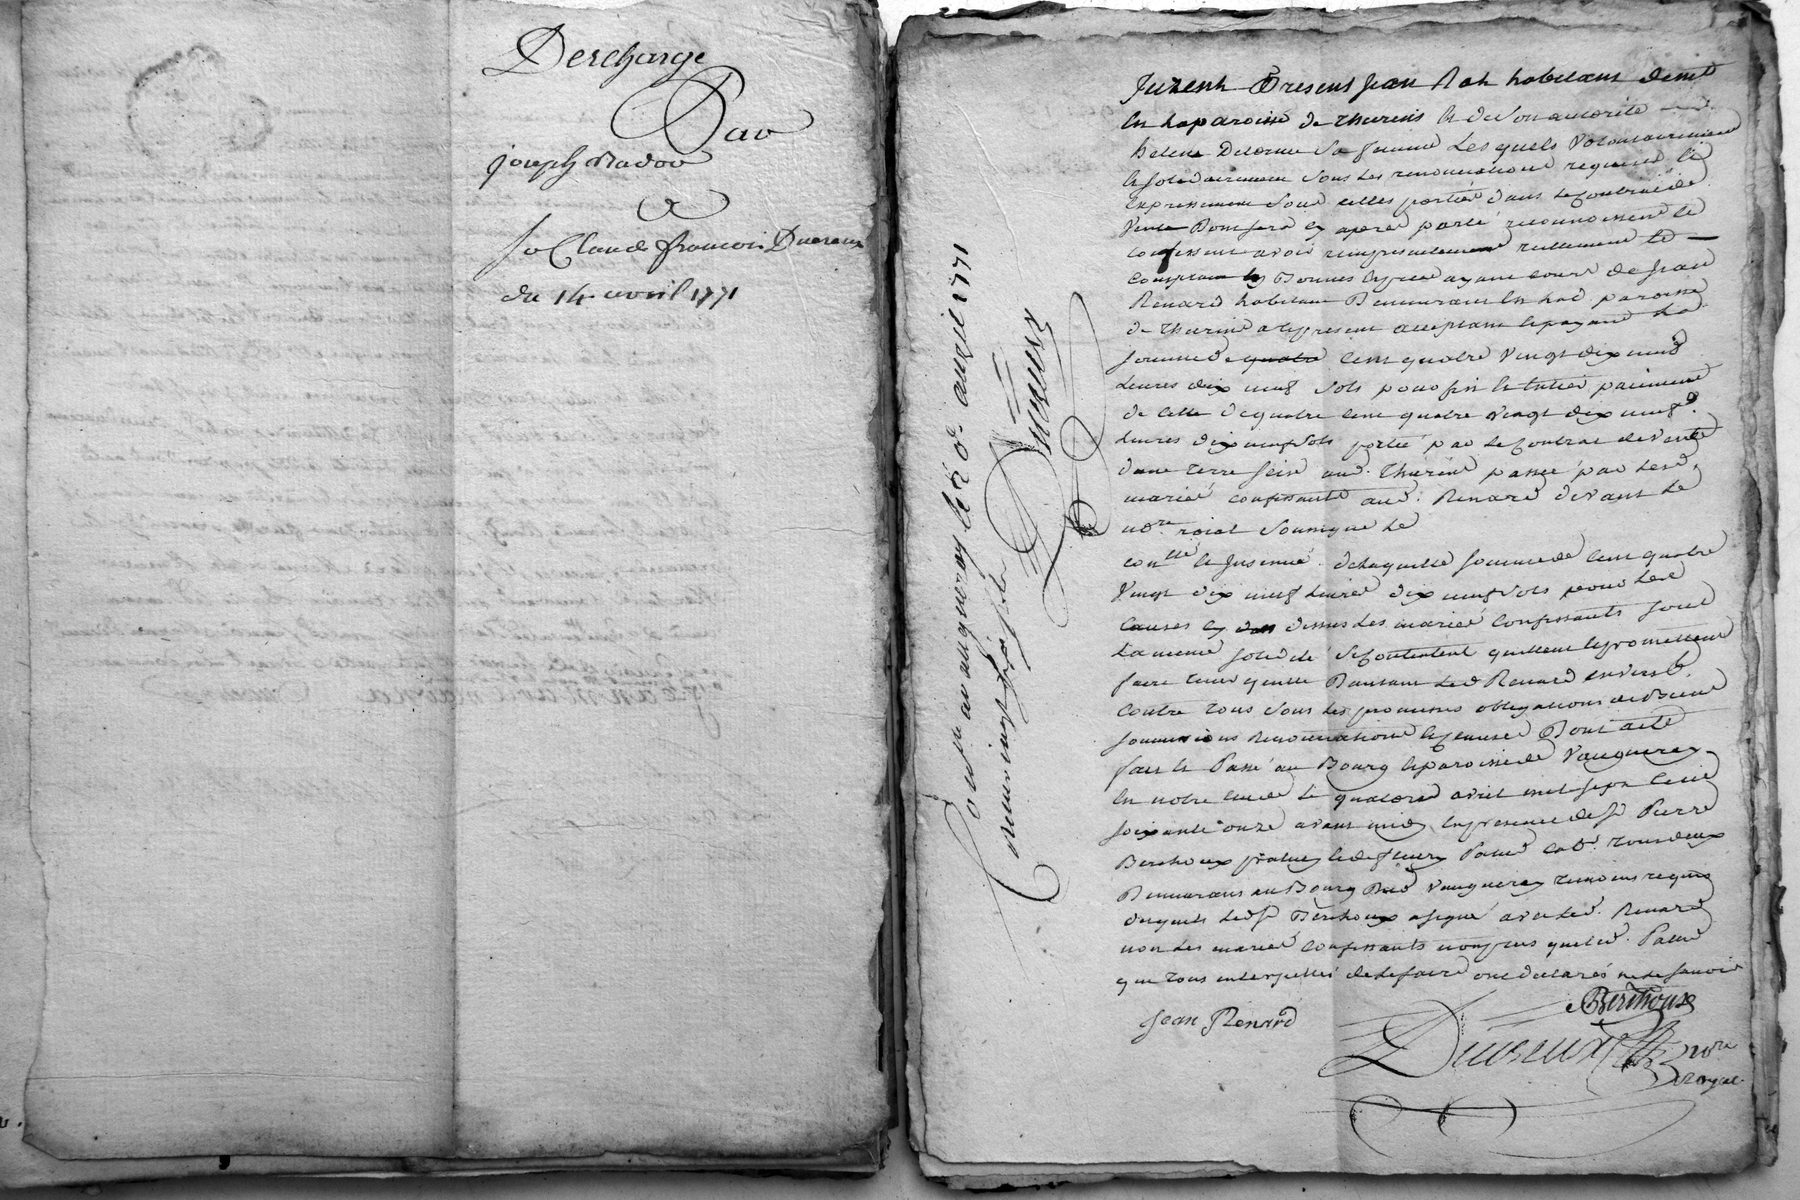 Descharge
Par
joseph Nadau
a
Sr Claude francois Duvreux
du 14 avril 1771
furent Presens Jean Rat habitans demt
en la paroisse de thurins & de son autorité
helene Delorme sa femme Lesquels Volontairement
& solidairement sous Les renonciations requises &
Expressement sous celles portées dans le Contrat de
Vente Dont sera cy apres parlé reconnoissent &
confessent avoir reellement &
comptant en Bonnes Especes ayant cours de Jean
Renard habitant Demeurant en lad paroisse
de thurins a ce present acceptant & payant La
somme de cent quatre Vingt dix neuf
Livres dix neuf sols pour fin & Entier paiement
de Celle de quatre cent quatre Vingt dix neuf
Livres dix neuf sols portée par Le Contrat de Vente
dune terre size aud. thurins passé par Lesd.
mariés confessants aud. Renard devant Le
nore roial soussigné Le
conllé & Insinué. de laquelle somme de Cent quatre
Vingt dix neuf Livres dix neuf sols pour Les
causes cy dessus Les mariés Confessants sous
La meme solidité se Contentent quittent & promettent
faire tenir quitte Dautant Led Renard envers &
Contre tous sous Les promesses obligations de Biens
soumissions Renonciations & Clauses Dont acte
fait & Passé au Bourg & paroisse de Vaugneray
En notre Etude Le quatorze avril mil sept Cent
soixante onze avant midy En presence de Sr Pierre
Berthoux & de fleury Patue Cabr. tous deux
Demeurans au Bourg Dud Vaugneray temoins requis
desquels Led Sr Berthoux a signé avec Led. Renard
non Les mariés Confessants non plus que Led. Patue
que tous interpellés de Le faire ont declarés ne Le savoir
Jean Renard
Berthoux
Duvreux
nore
Royal
Conllé au vaugneray le 20 avril 1771
Duvreux